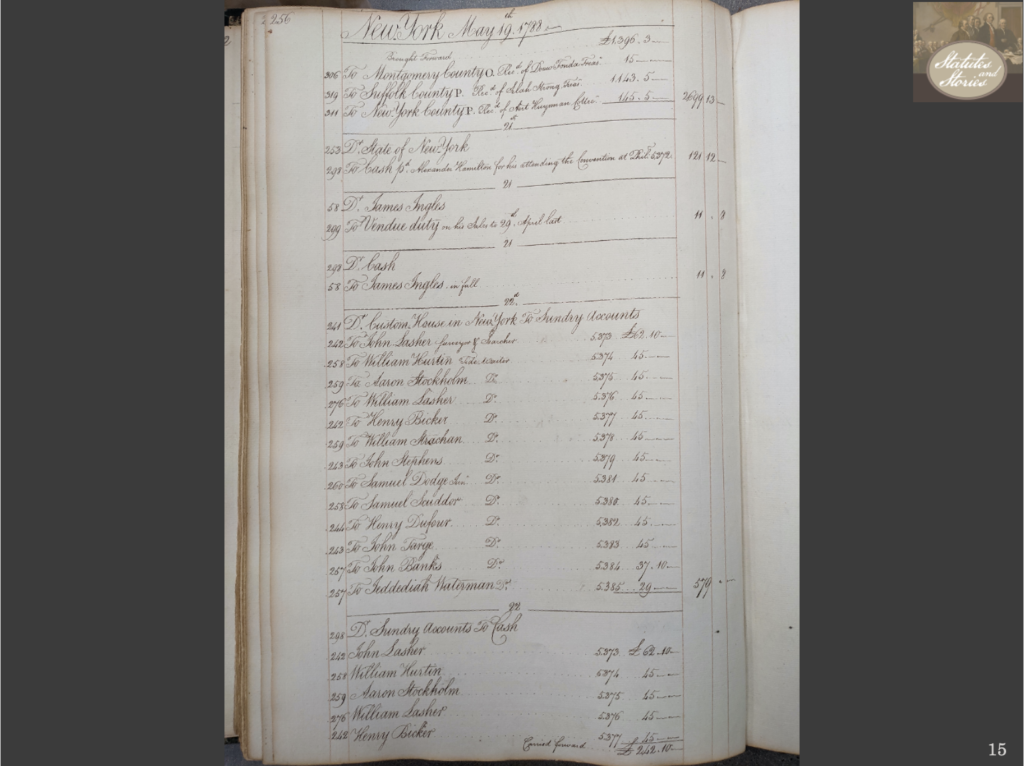 256
New York May 19th 1788
Brought Forward £1,396.3
306 To Montgomery County O. Recd of Dow Fonda Treas. 15
319 To Suffolk County P. Recd of Selah Strong Treas. 1143.5
311 To New York County P. Recd of 145.5 2699 13
21st
253 Dr State of New York
298 To Cash pd Alexander Hamilton for his attending the Convention at Phila 5372. 121 12
21
58 Dr James Ingles
299 To Vendue duty on his Sales to 29th April last 11 . 8
21
298 Dr Cash
58 To James Ingles in full 11 . 8
22d
241 Dr Custom House in New York To Sundry Accounts
242 To John Lasher Surveyor & Searcher 5373 £62.10
258 To William Hurtin 5374 45
259 To Aaron Stockholm Do 5375 45
276 To William Lasher Do 5376 45
242 To Henry Bicker Do 5377 45
259 To William Strachan Do 5378 45
253 To John Stephens Do 5379 45
260 To Samuel Dodge Do 5381 45
258 To Samuel Scudder Do 5380 45
244 To Henry Do 5382 45
243 To John Targe Do 5383 45
257 To John Banks Do 5384 37.10
257 To Jeddediah Waterman Do 5385 29 579
22
298 Dr Sundry Accounts To Cash
242 John Lasher 5373 £62.10
258 William Hurtin 5374 45
259 Aaron Stockholm 5375 45
276 William Lasher 5376 45
242 Henry Bicker 5377 45
Carried forward £242.10
Statutes
and
Stories
15